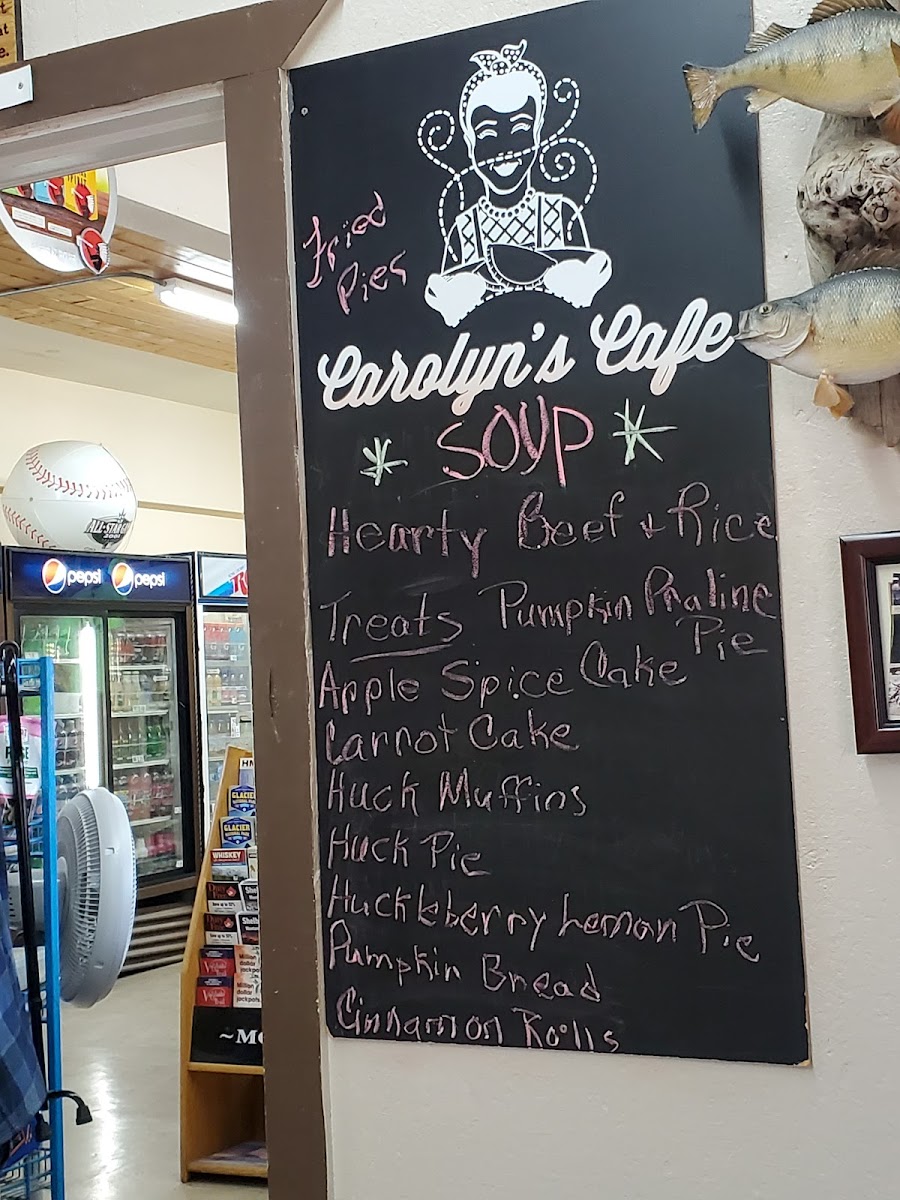 Fried
Pies
Carolyn's Cafe
* SOUP *
Hearty Beef & Rice
Treats Pumpkin Praline
Pie
Apple Spice Cake
Carrot Cake
Huck Muffins
Huck Pie
Huckleberry Lemon Pie
Pumpkin Bread
Cinnamon Rolls
ALL-STAR
pepsi pepsi
GLACIER
GLACIER
WHISKEY
Million
dollar
jackpots
~MO